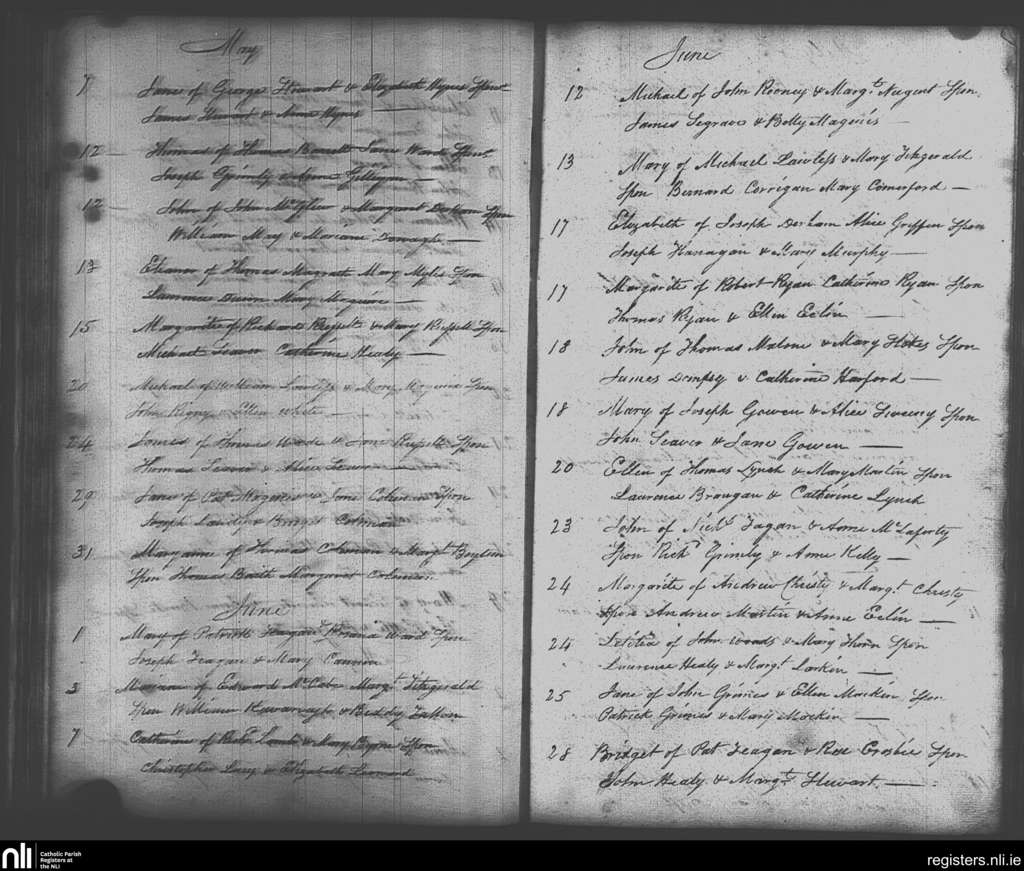 May
8 Jane of George Stewart & Elizabeth Hynes Spon
James Stewart & Anne Hynes
12 Thomas of Thomas Jane Ward Spon
Joseph Grimly & Anne Gilligan
12 John of John & Margaret Spon
William May & Mariane
13 Eleanor of Thomas Magrath Mary Myles Spon
Laurence Quinn Mary Maguire
15 Margarite of Richard Russell & Mary Russell Spon
Michael Seaver Catherine Healy
20 Michael of William Lawless & Mary Spon
John & Ellen White
24 James of Thomas Wade & Jane Russell Spon
Thomas Seaver & Alice Seaver
29 Jane of Pat & Jane Coleman Spon
Joseph & Bridget Coleman
31 Maryanne of Thomas Coleman & Margt. Boylan
Spon Thomas Margaret Coleman
June
1 Mary of Patrick Feagan Rosana Ward Spon
Joseph Feagan & Mary Cannon
3 Mariane of Edward McCabe Margt. Fitzgerald
Spon William Kavanagh & Biddy Fallon
7 Catherine of Richd. Lamb & Mary Spon
Christopher Lacy & Elizabeth Leonard
June
12 Michael of John Rooney & Margt. Nugent Spon
James Segrave & Betty Magenis
13 Mary of Michael Lawless & Mary Fitzgerald
Spon Bernard Corrigan Mary Comerford
17 Elizabeth of Joseph Derham Alice Griffin Spon
Joseph Flanagan & Mary Murphy
17 Margarite of Robert Ryan Catherine Ryan Spon
Thomas Ryan & Ellen Eclin
18 John of Thomas Malone & Mary Spon
James Dempsy & Catherine Harford
18 Mary of Joseph Gowen & Alice Sweeny Spon
John Seaver & Jane Gowen
20 Ellen of Thomas Lynch & Mary Martin Spon
Laurence Brangan & Catherine Lynch
23 John of Nichs. Fagan & Anne McLaferty
Spon Richd. Grimly & Anne Kelly
24 Margarite of Andrew Christy & Margt. Christy
Spon Andrew Martin & Anne Eclin
24 Letitia of John Woods & Mary Thorn Spon
Laurence Healy & Margt. Larken
25 Jane of John Grimes & Ellen Mackin Spon
Patrick Grimes & Mary Mackin
28 Bridget of Pat Feagan & Rose Crosbie Spon
John Healy & Margt. Stewart
nli Catholic Parish
Registers at
the NLI
registers.nli.ie